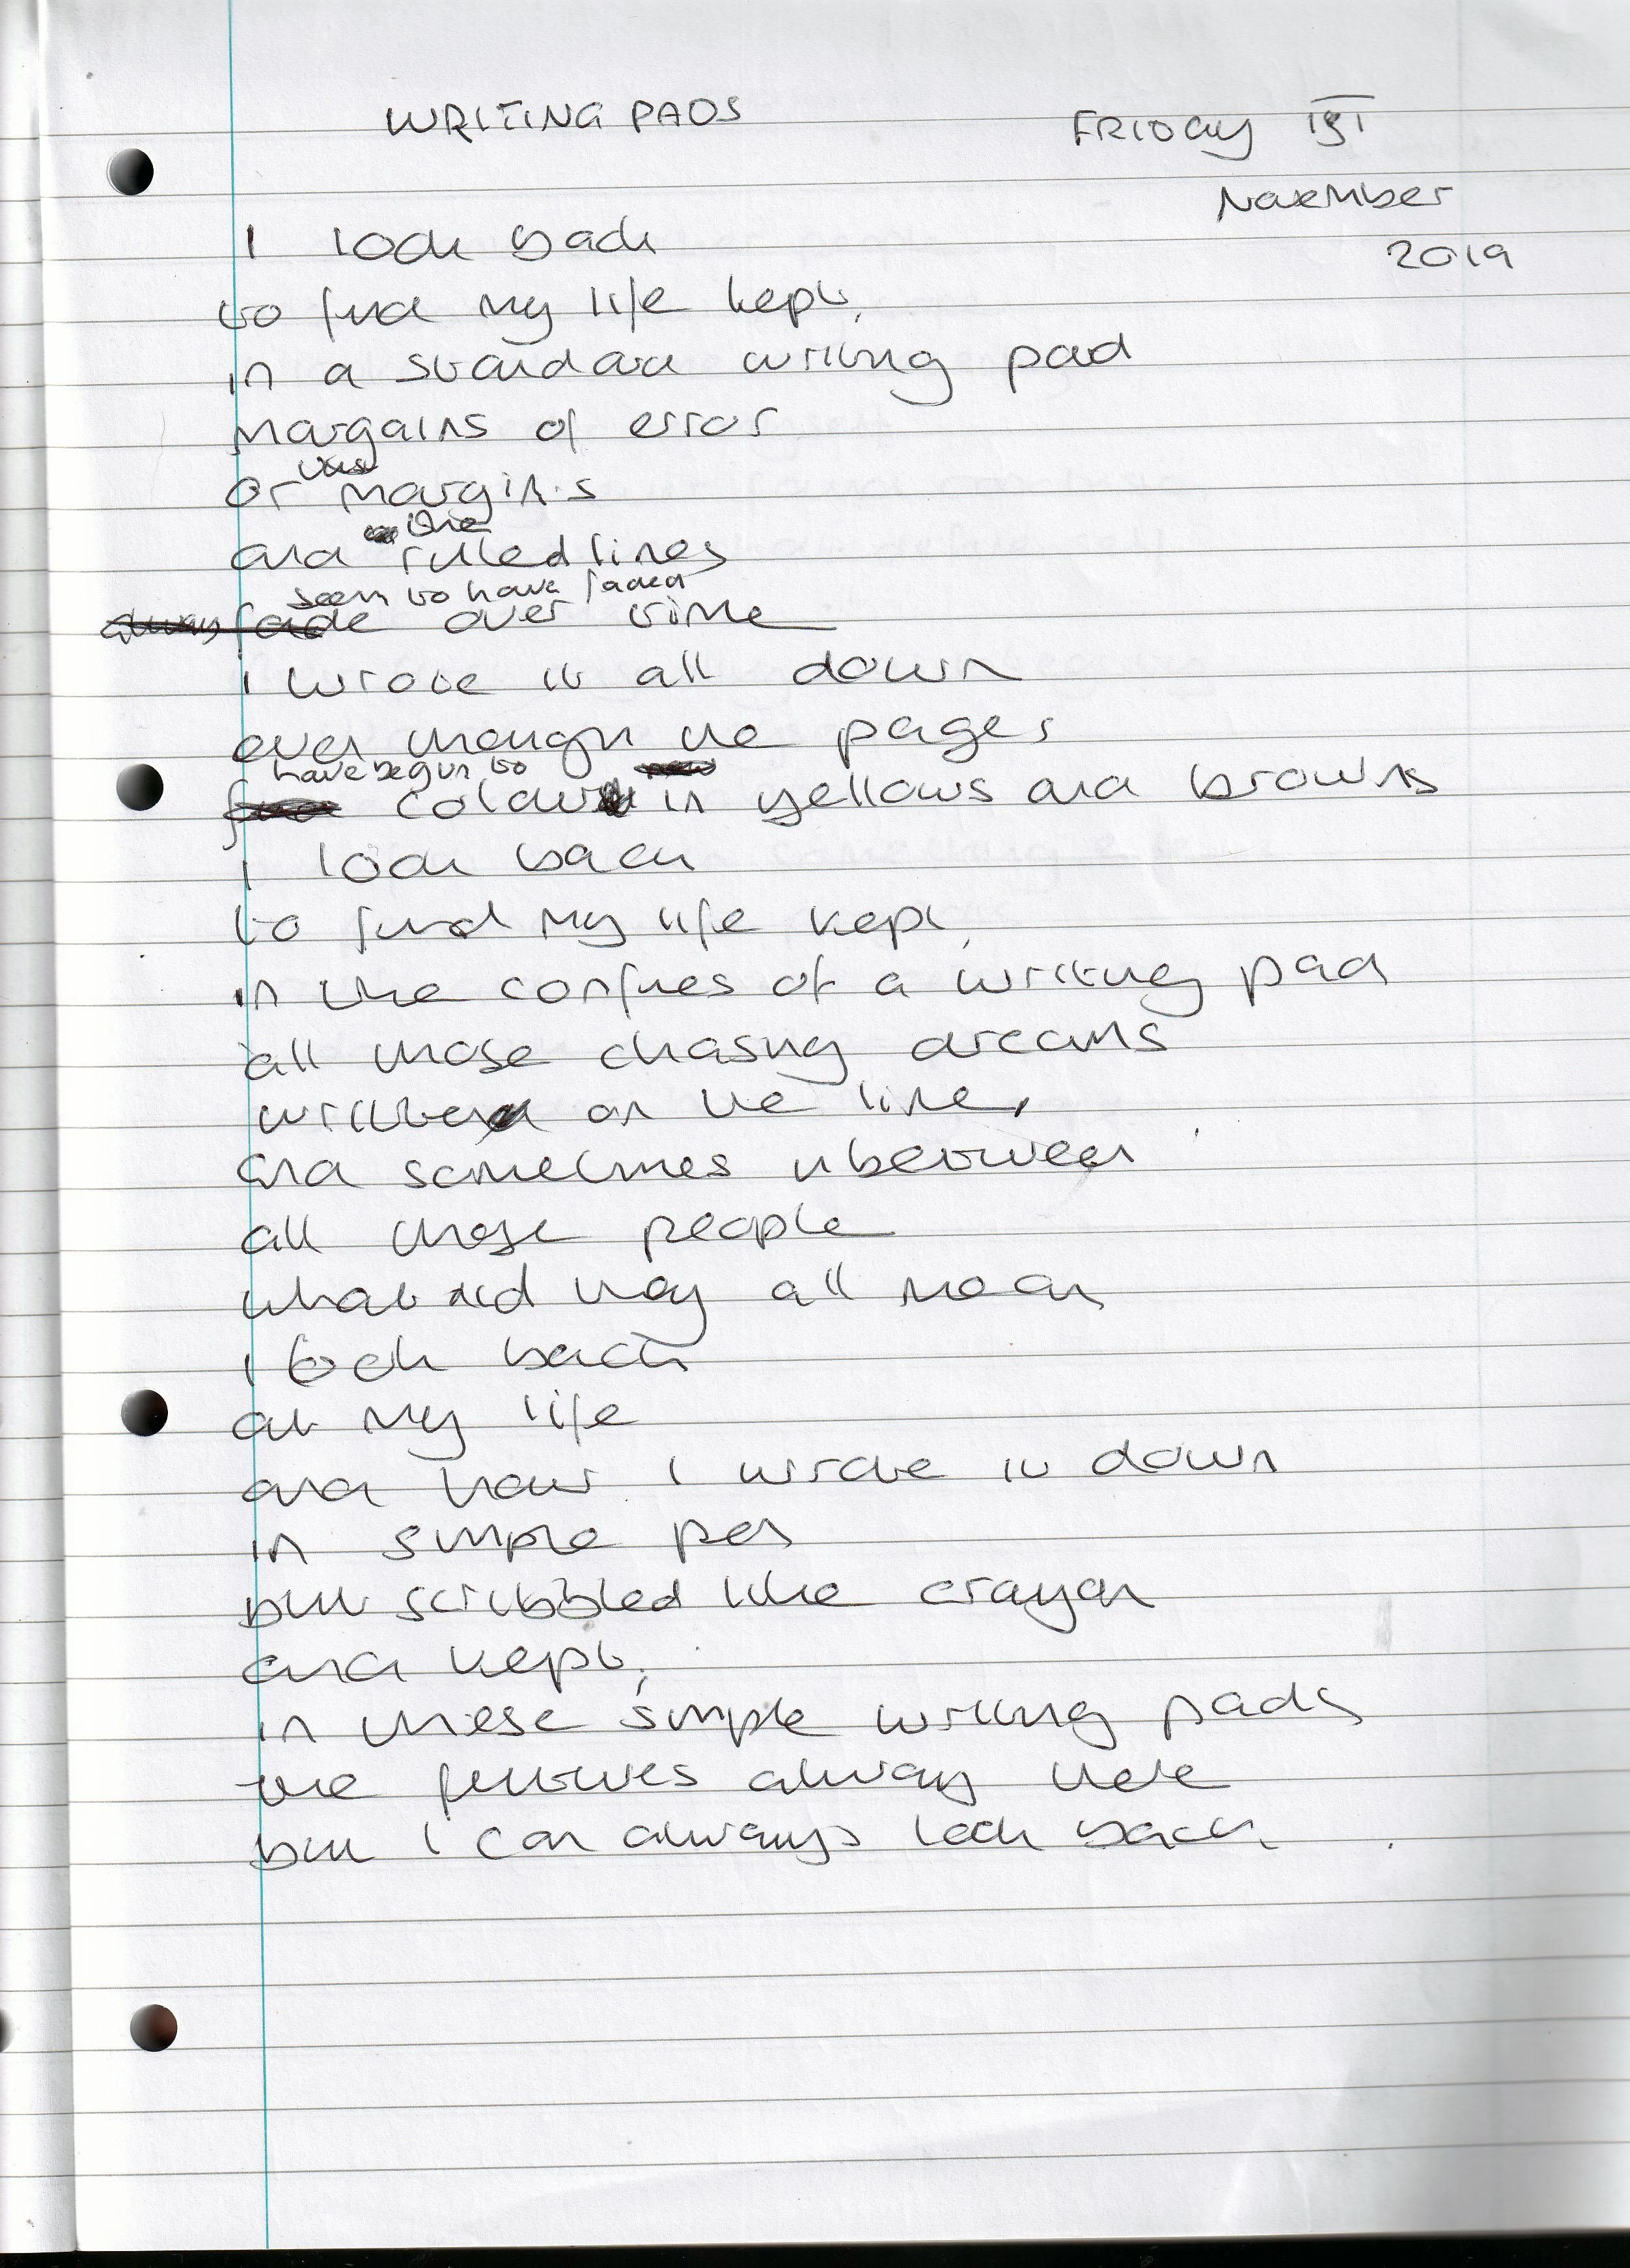 WRITING PADS
FRIDAY 1ST
NOVEMBER
2019
I look back
to find my life kept,
in a standard writing pad
margains of error
or
margins
and the
ruled lines
seem to have faded
fade over time
I wrote it all down
even though the pages
have begun to
colour in yellows and browns
I look back
to find my life kept,
in the confines of a writing pad
all those chasing dreams
written on the line,
and sometimes inbetween
all those people
what did they all mean
I look back
at my life
and how I wrote it down
in simple pen
but scribbled like crayon
and kept,
in these simple writing pads
the futures always there
but I can always look back.